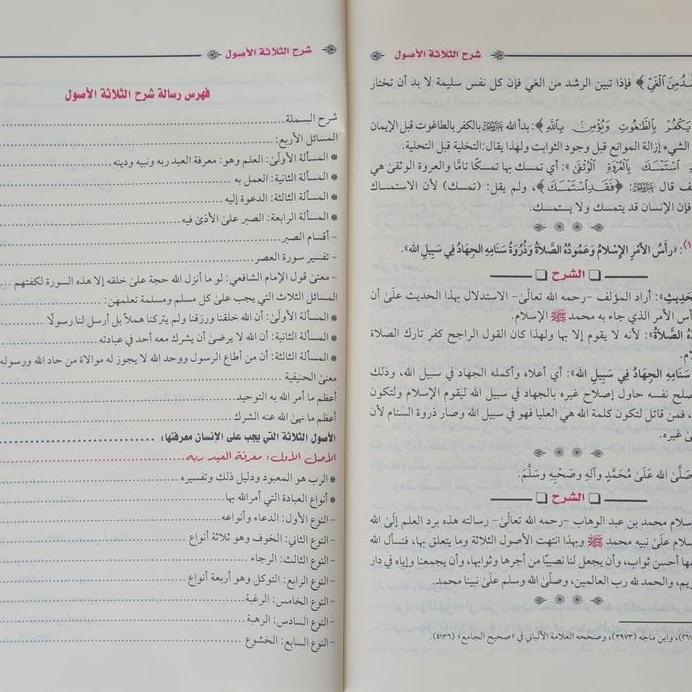 شرح الثلاثة الأصول
الغَيِّ﴾ فإذا تبين الرشد من الغي فإن كل نفس سليمة لا بد أن تختار
يَكْفُرْ بِالطَّاغُوتِ وَيُؤْمِنْ بِاللَّهِ﴾: بدأ الله ﷻ بالكفر بالطاغوت قبل الإيمان
الشيء إزالة الموانع قبل وجود الثوابت ولهذا يقال: التخلية قبل التحلية.
اسْتَمْسَكَ بِالْعُرْوَةِ الْوُثْقَىٰ﴾: أي تمسك بها تمسكًا تامًّا والعروة الوثقى هي
قال ﷻ: ﴿فَقَدِ اسْتَمْسَكَ﴾، ولم يقل: (تمسك) لأن الاستمساك
فإن الإنسان قد يتمسك ولا يستمسك.
«رَأسُ الأَمْرِ الإِسْلَامُ وَعَمُودُهُ الصَّلَاةُ وَذُرْوَةُ سَنَامِهِ الجِهَادُ فِي سَبِيلِ الله».
الشرح
أراد المؤلف -رحمه الله تعالى- الاستدلال بهذا الحديث على أن
الأمر الذي جاء به محمد ﷺ الإسلام.
الصَّلَاةُ»: لأنه لا يقوم إلا بها ولهذا كان القول الراجح كفر تارك الصلاة
سَنَامِهِ الجِهَادُ فِي سَبِيلِ الله»: أي أعلاه وأكمله الجهاد في سبيل الله، وذلك
نفسه حاول إصلاح غيره بالجهاد في سبيل الله ليقوم الإسلام ولتكون
فمن قاتل لتكون كلمة الله هي العليا فهو في سبيل الله وصار ذروة السنام لأن
غيره.
صَلَّى اللهُ عَلَىٰ مُحَمَّدٍ وَآلِهِ وَصَحْبِهِ وَسَلَّمَ.
الشرح
محمد بن عبد الوهاب -رحمه الله تعالى- رسالته هذه برد العلم إلى الله
على نبيه محمد ﷺ وبهذا انتهت الأصول الثلاثة وما يتعلق بها، فنسأل الله
أحسن ثواب، وأن يجعل لنا نصيبًا من أجرها وثوابها، وأن يجمعنا وإياه في دار
والحمد لله رب العالمين، وصلى الله وسلم على نبينا محمد.
وابن ماجه (٣٩٧٣)، وصححه العلامة الألباني في «صحيح الجامع» (٥١٣٦).
شرح الثلاثة الأصول
فهرس رسالة شرح الثلاثة الأصول
شرح البسملة
المسائل الأربع:
* المسألة الأولى: العلم وهو: معرفة العبد ربه ونبيه ودينه
* المسألة الثانية: العمل به
* المسألة الثالثة: الدعوة إليه
* المسألة الرابعة: الصبر على الأذى فيه
- أقسام الصبر
- تفسير سورة العصر
- معنى قول الإمام الشافعي: لو ما أنزل الله حجة على خلقه إلا هذه السورة لكفتهم
المسائل الثلاث التي يجب على كل مسلم ومسلمة تعلمهن:
* المسألة الأولى: أن الله خلقنا ورزقنا ولم يتركنا هملًا بل أرسل لنا رسولًا
* المسألة الثانية: أن الله لا يرضى أن يشرك معه أحد في عبادته
* المسألة الثالثة: أن من أطاع الرسول ووحد الله لا يجوز له موالاة من حاد الله ورسوله
معنى الحنيفية
أعظم ما أمر الله به التوحيد
أعظم ما نهى الله عنه الشرك
الأصول الثلاثة التي يجب على الإنسان معرفتها:
الأصل الأول: معرفة العبد ربه
* الرب هو المعبود ودليل ذلك وتفسيره
* أنواع العبادة التي أمر الله بها
- النوع الأول: الدعاء وأنواعه
- النوع الثاني: الخوف وهو ثلاثة أنواع
- النوع الثالث: الرجاء
- النوع الرابع: التوكل وهو أربعة أنواع
- النوع الخامس: الرغبة
- النوع السادس: الرهبة
- النوع السابع: الخشوع